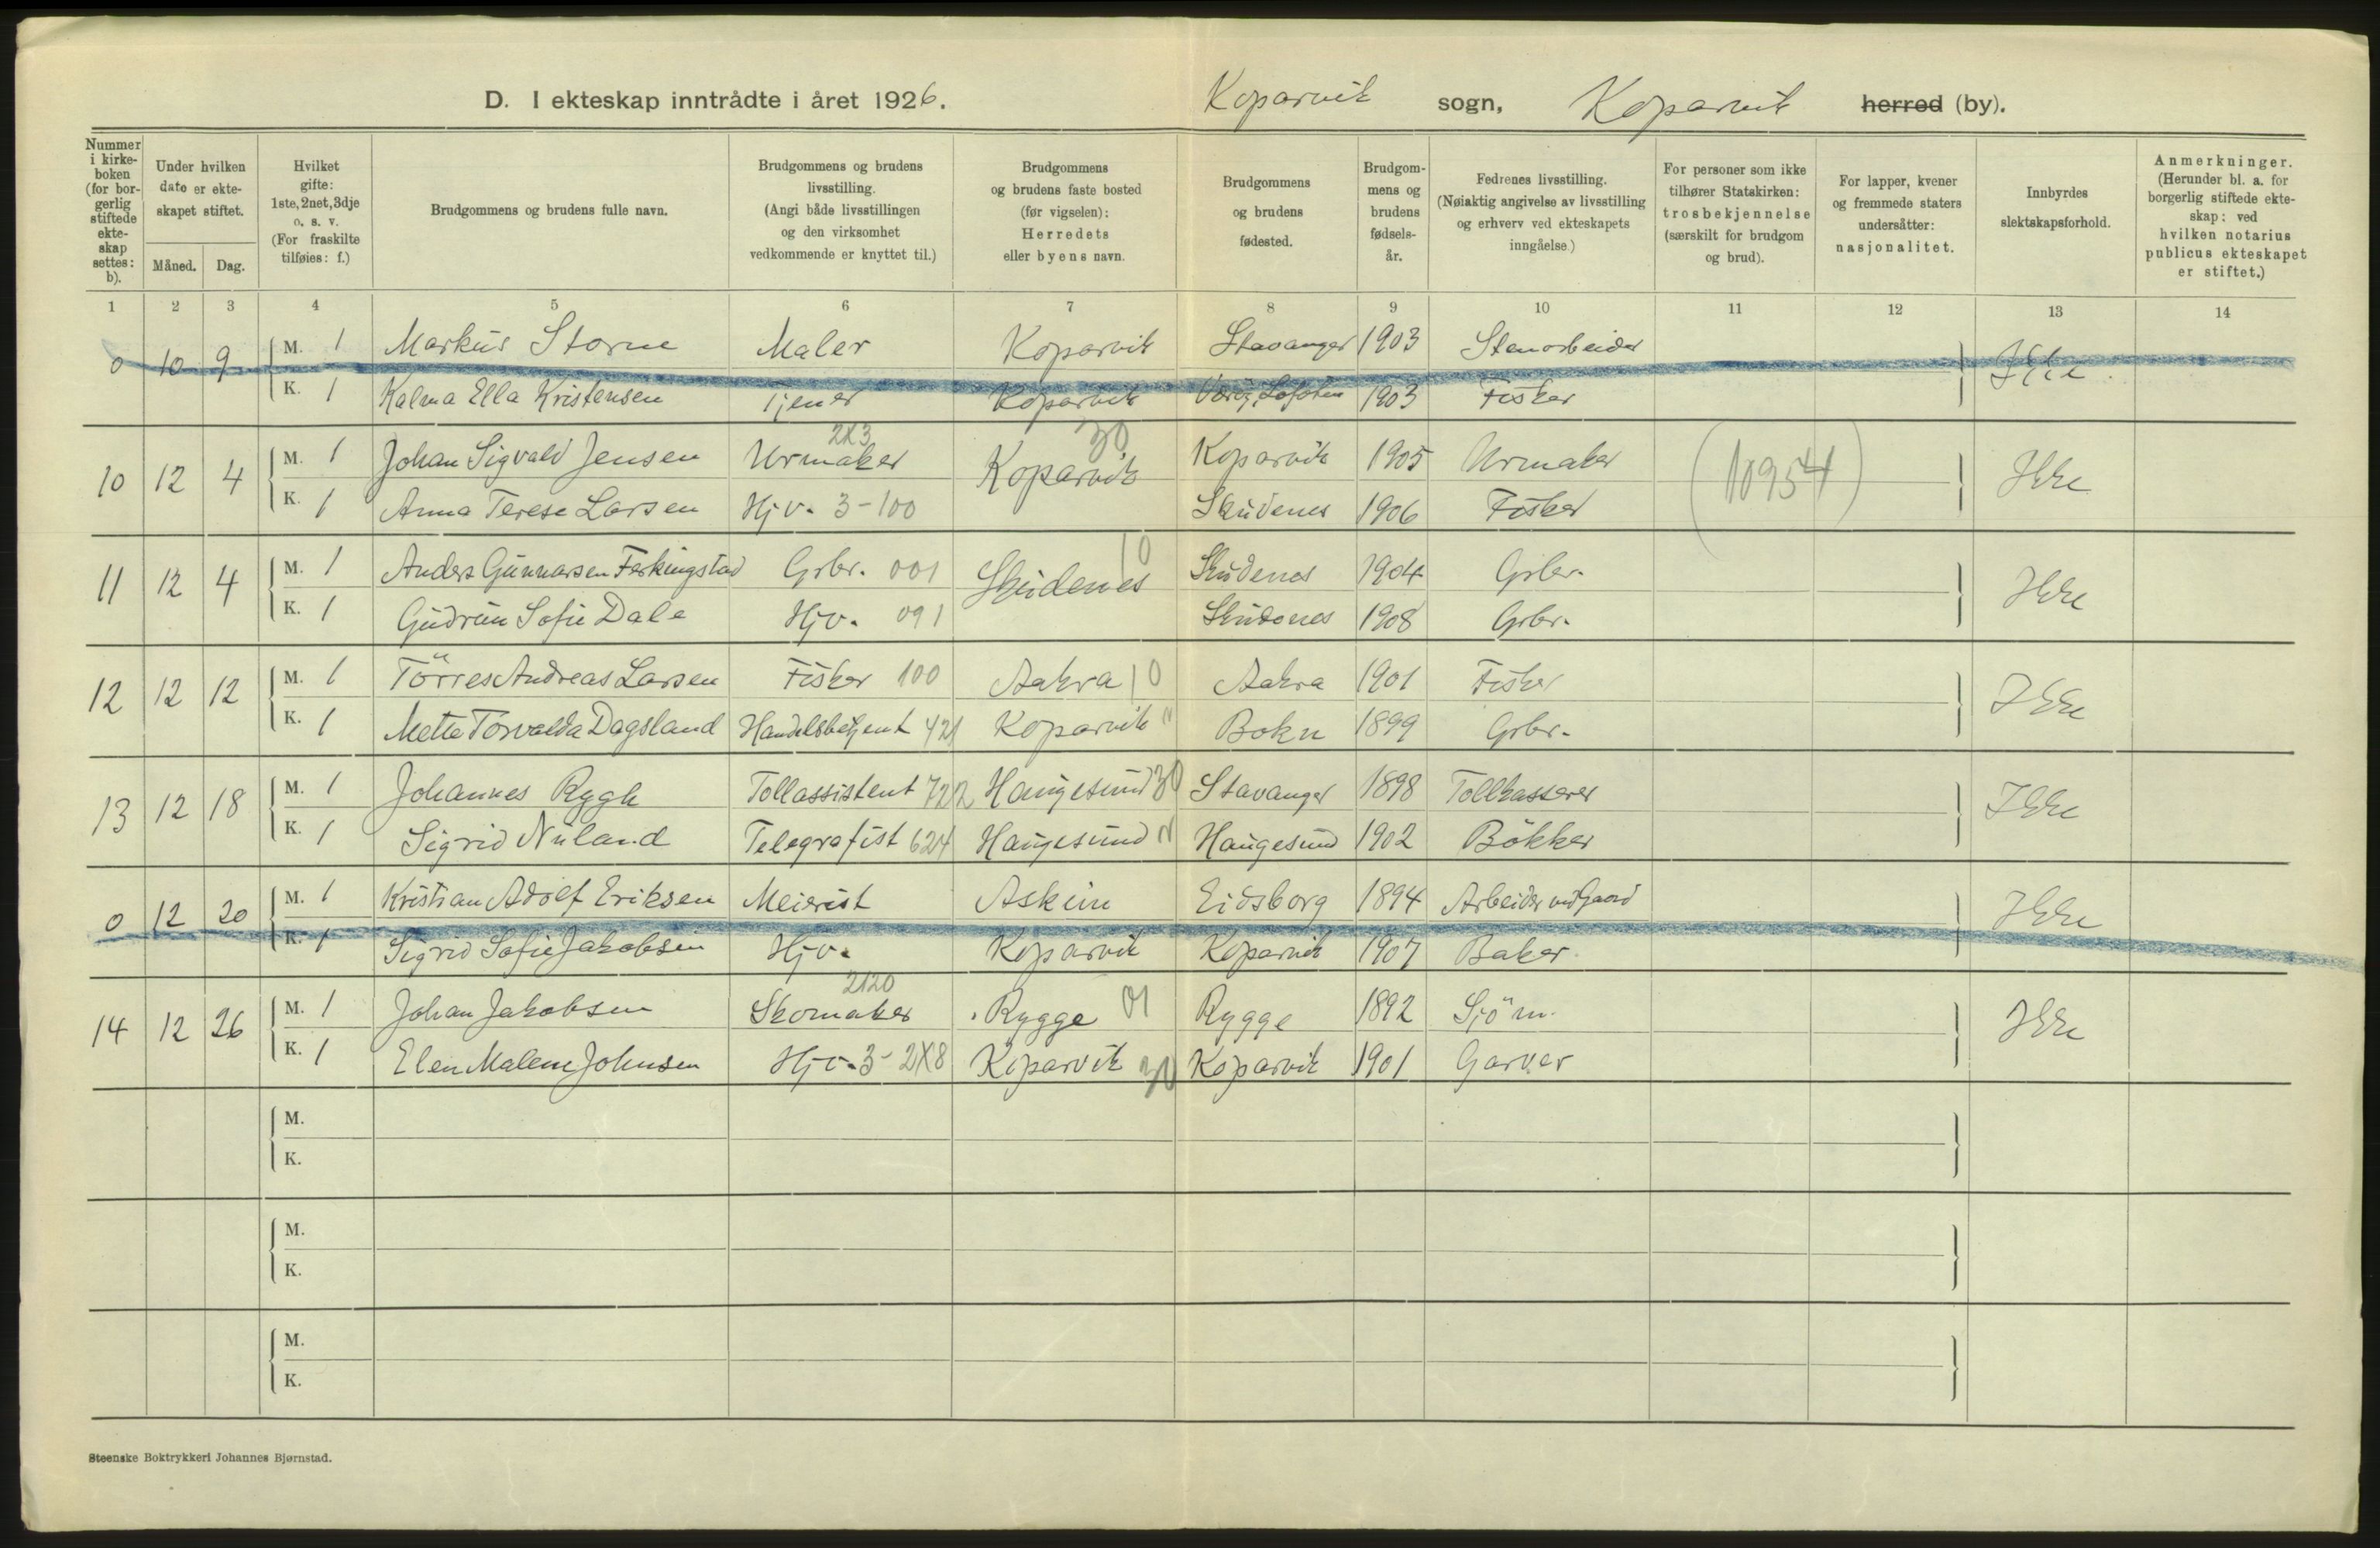 D. I ekteskap inntrådte i året 1926. Koparvik sogn, Koparvik herred (by).
Nummer i kirkeboken (for borgerlig stiftede ekteskap settes: b).
Under hvilken dato er ekteskapet stiftet.
Måned. Dag.
Hvilket gifte: 1ste, 2net, 3dje o. s. v. (For fraskilte tilføies: f.)
Brudgommens og brudens fulle navn.
Brudgommens og brudens livsstilling. (Angi både livsstillingen og den virksomhet vedkommende er knyttet til.)
Brudgommens og brudens faste bosted (før vigselen): Herredets eller byens navn.
Brudgommens og brudens fødested.
Brudgommens og brudens fødselsår.
Fedrenes livsstilling. (Nøiaktig angivelse av livsstilling og erhverv ved ekteskapets inngåelse.)
For personer som ikke tilhører Statskirken: trosbekjennelse (særskilt for brudgom og brud).
For lapper, kvener og fremmede staters undersåtter: nasjonalitet.
Innbyrdes slektskapsforhold.
Anmerkninger. (Herunder bl. a. for borgerlig stiftede ekteskap: ved hvilken notarius publicus ekteskapet er stiftet.)
1 2 3 4 5 6 7 8 9 10 11 12 13 14
0 10 9 M. 1 Markus Storm Maler Koparvik Stavanger 1903 Stenarbeider Ikke
K. 1 Kalma Ella Kristensen Tjener Koparvik Værøy, Lofoten 1903 Fisker
2X3 30
10 12 4 M. 1 Johan Sigvald Jensen Urmaker Koparvik Koparvik 1905 Urmaker (10954) Ikke
K. 1 Anna Terese Larsen Hjv. 3-100 Skudenes 1906 Fisker
11 12 4 M. 1 Anders Gunnarsen Ferkingstad Grbr. 001 Skudenes 10 Skudenes 1904 Grbr. Ikke
K. 1 Gudrun Sofie Dale Hjv. 091 Skudenes 1908 Grbr.
12 12 12 M. 1 Törres Andreas Larsen Fisker 100 Aakra 10 Aakra 1901 Fisker Ikke
K. 1 Mette Torvalda Dagsland Handelsbetjent 421 Koparvik " Bokn 1899 Grbr.
13 12 18 M. 1 Johannes Rygh Tollassistent 722 Haugesund 30 Stavanger 1898 Tollkasserer Ikke
K. 1 Sigrid Nuland Telegrafist 624 Haugesund " Haugesund 1902 Bökker
0 12 20 M. 1 Kristian Adolf Eriksen Meierist Askim Eidsborg 1894 Arbeider ved Gaard Ikke
K. 1 Sigrid Sofie Jakobsen Hjv. Koparvik Koparvik 1907 Baker
2120
14 12 26 M. 1 Johan Jakobsen Skomaker Rygge 01 Rygge 1892 Sjöm. Ikke
K. 1 Elen Malene Johnsen Hjv. 3-2X8 Koparvik 30 Koparvik 1901 Garver
M.
K.
M.
K.
M.
K.
Steenske Boktrykkeri Johannes Bjørnstad.